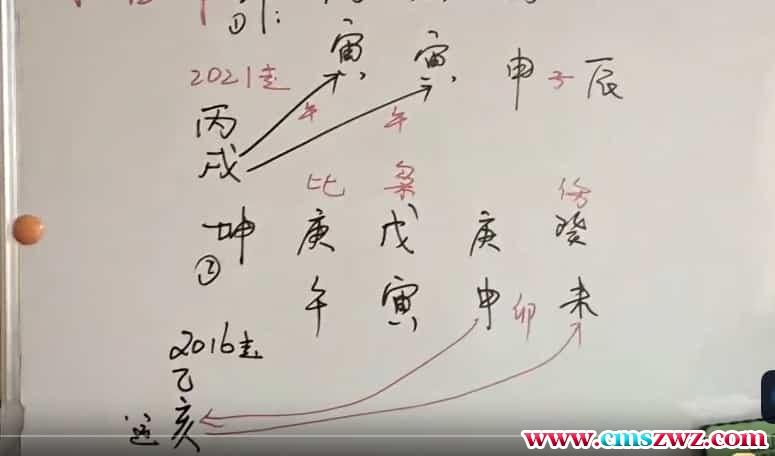 ①
寅 寅 申子辰
2021走
午 午
丙
戌
比 枭 伤
坤 庚 戊 庚 癸
②
午 寅 申 卯 未
2016走
乙
运 亥
www.cmszwz.com